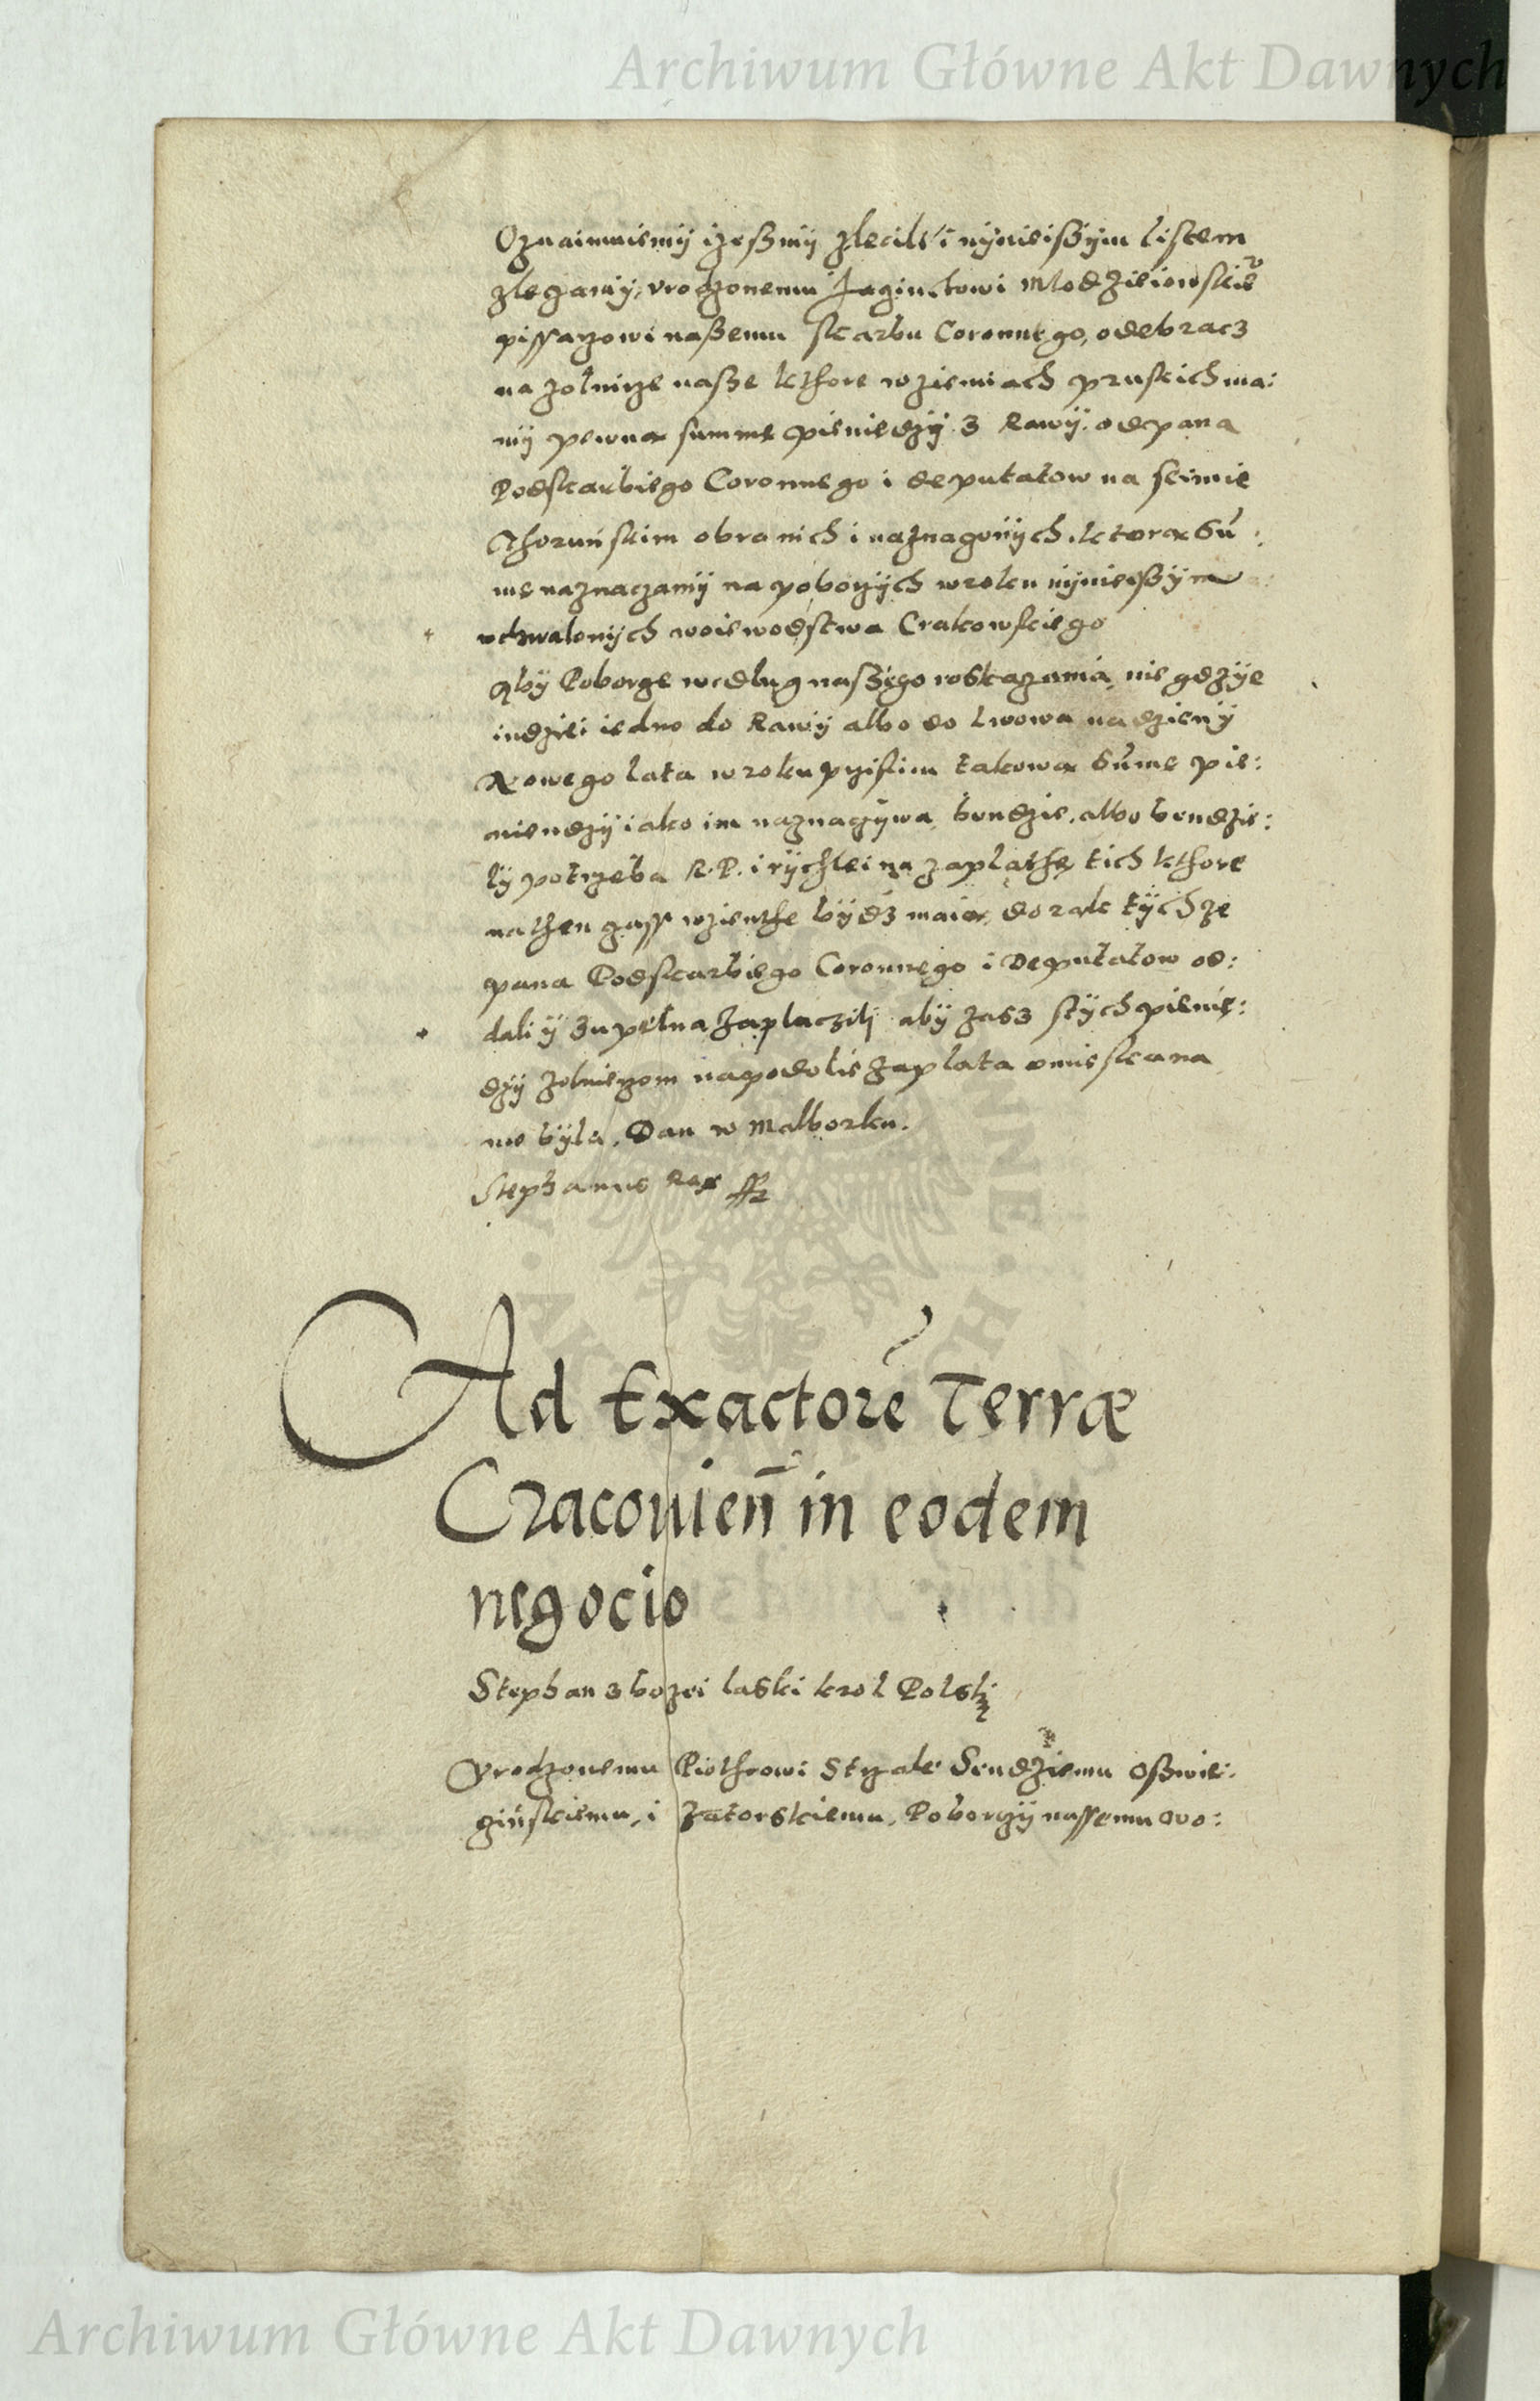 Archiwum Główne Akt Dawnych
Oznaimuiemÿ izeßmÿ zlecili i nÿnieißÿm listem
zlecamÿ, vrodzonemu Jacinctowi Mlodzieiowskie͏ᵛ
pissarzowi naßemu skarbu Coronnego, odebracz
na zolnirze nasze kthore w ziemiach pruskich ma:
mÿ pewna summe pieniedzÿ z Rawÿ. od pana
Podskarbiego Coronnego i deputatow na seimie
Thoruńskim obranich i naznaczonÿch. ktora Su͞:
me naznaczamÿ na poborzÿch w roku nÿnieißÿm
vchwalonÿch woiewodstwa Crakowskiego
Abÿ Poborze wedlug naszego roskazania nie gdzÿe
indziei iedno do Rawÿ albo do Lwowa na dzienÿ
Nowego lata w roku przistim takowa Su͞me pie:
niendzÿ iako im naznaczÿwa bendzie, albo bendzie:
lÿ potrzeba R. P. i rÿchlei na zaplathe tich kthore
na then czass wzienthe bÿdz maia, do rak tÿchze
pana Podskarbiego Coronnego i Deputatow od:
dali ÿ zupelna zaplaczilj abÿ zasz stÿch pienie:
dzÿ zolnierzom na podolie zaplata omieskana
nie bÿla. Dan w Malborku.
Stephanus Rex
Ad Exactore͞ Terræ
Cracouien͞ in eodem
negocio
Stephan z bozei laski krol Polskj
Vrodzonemu Piothrowi Strzale Sendziemu Oßwie:
cińskiemu, i Zatorskiemu, Poborczÿ nassemu wo:
Archiwum Główne Akt Dawnych